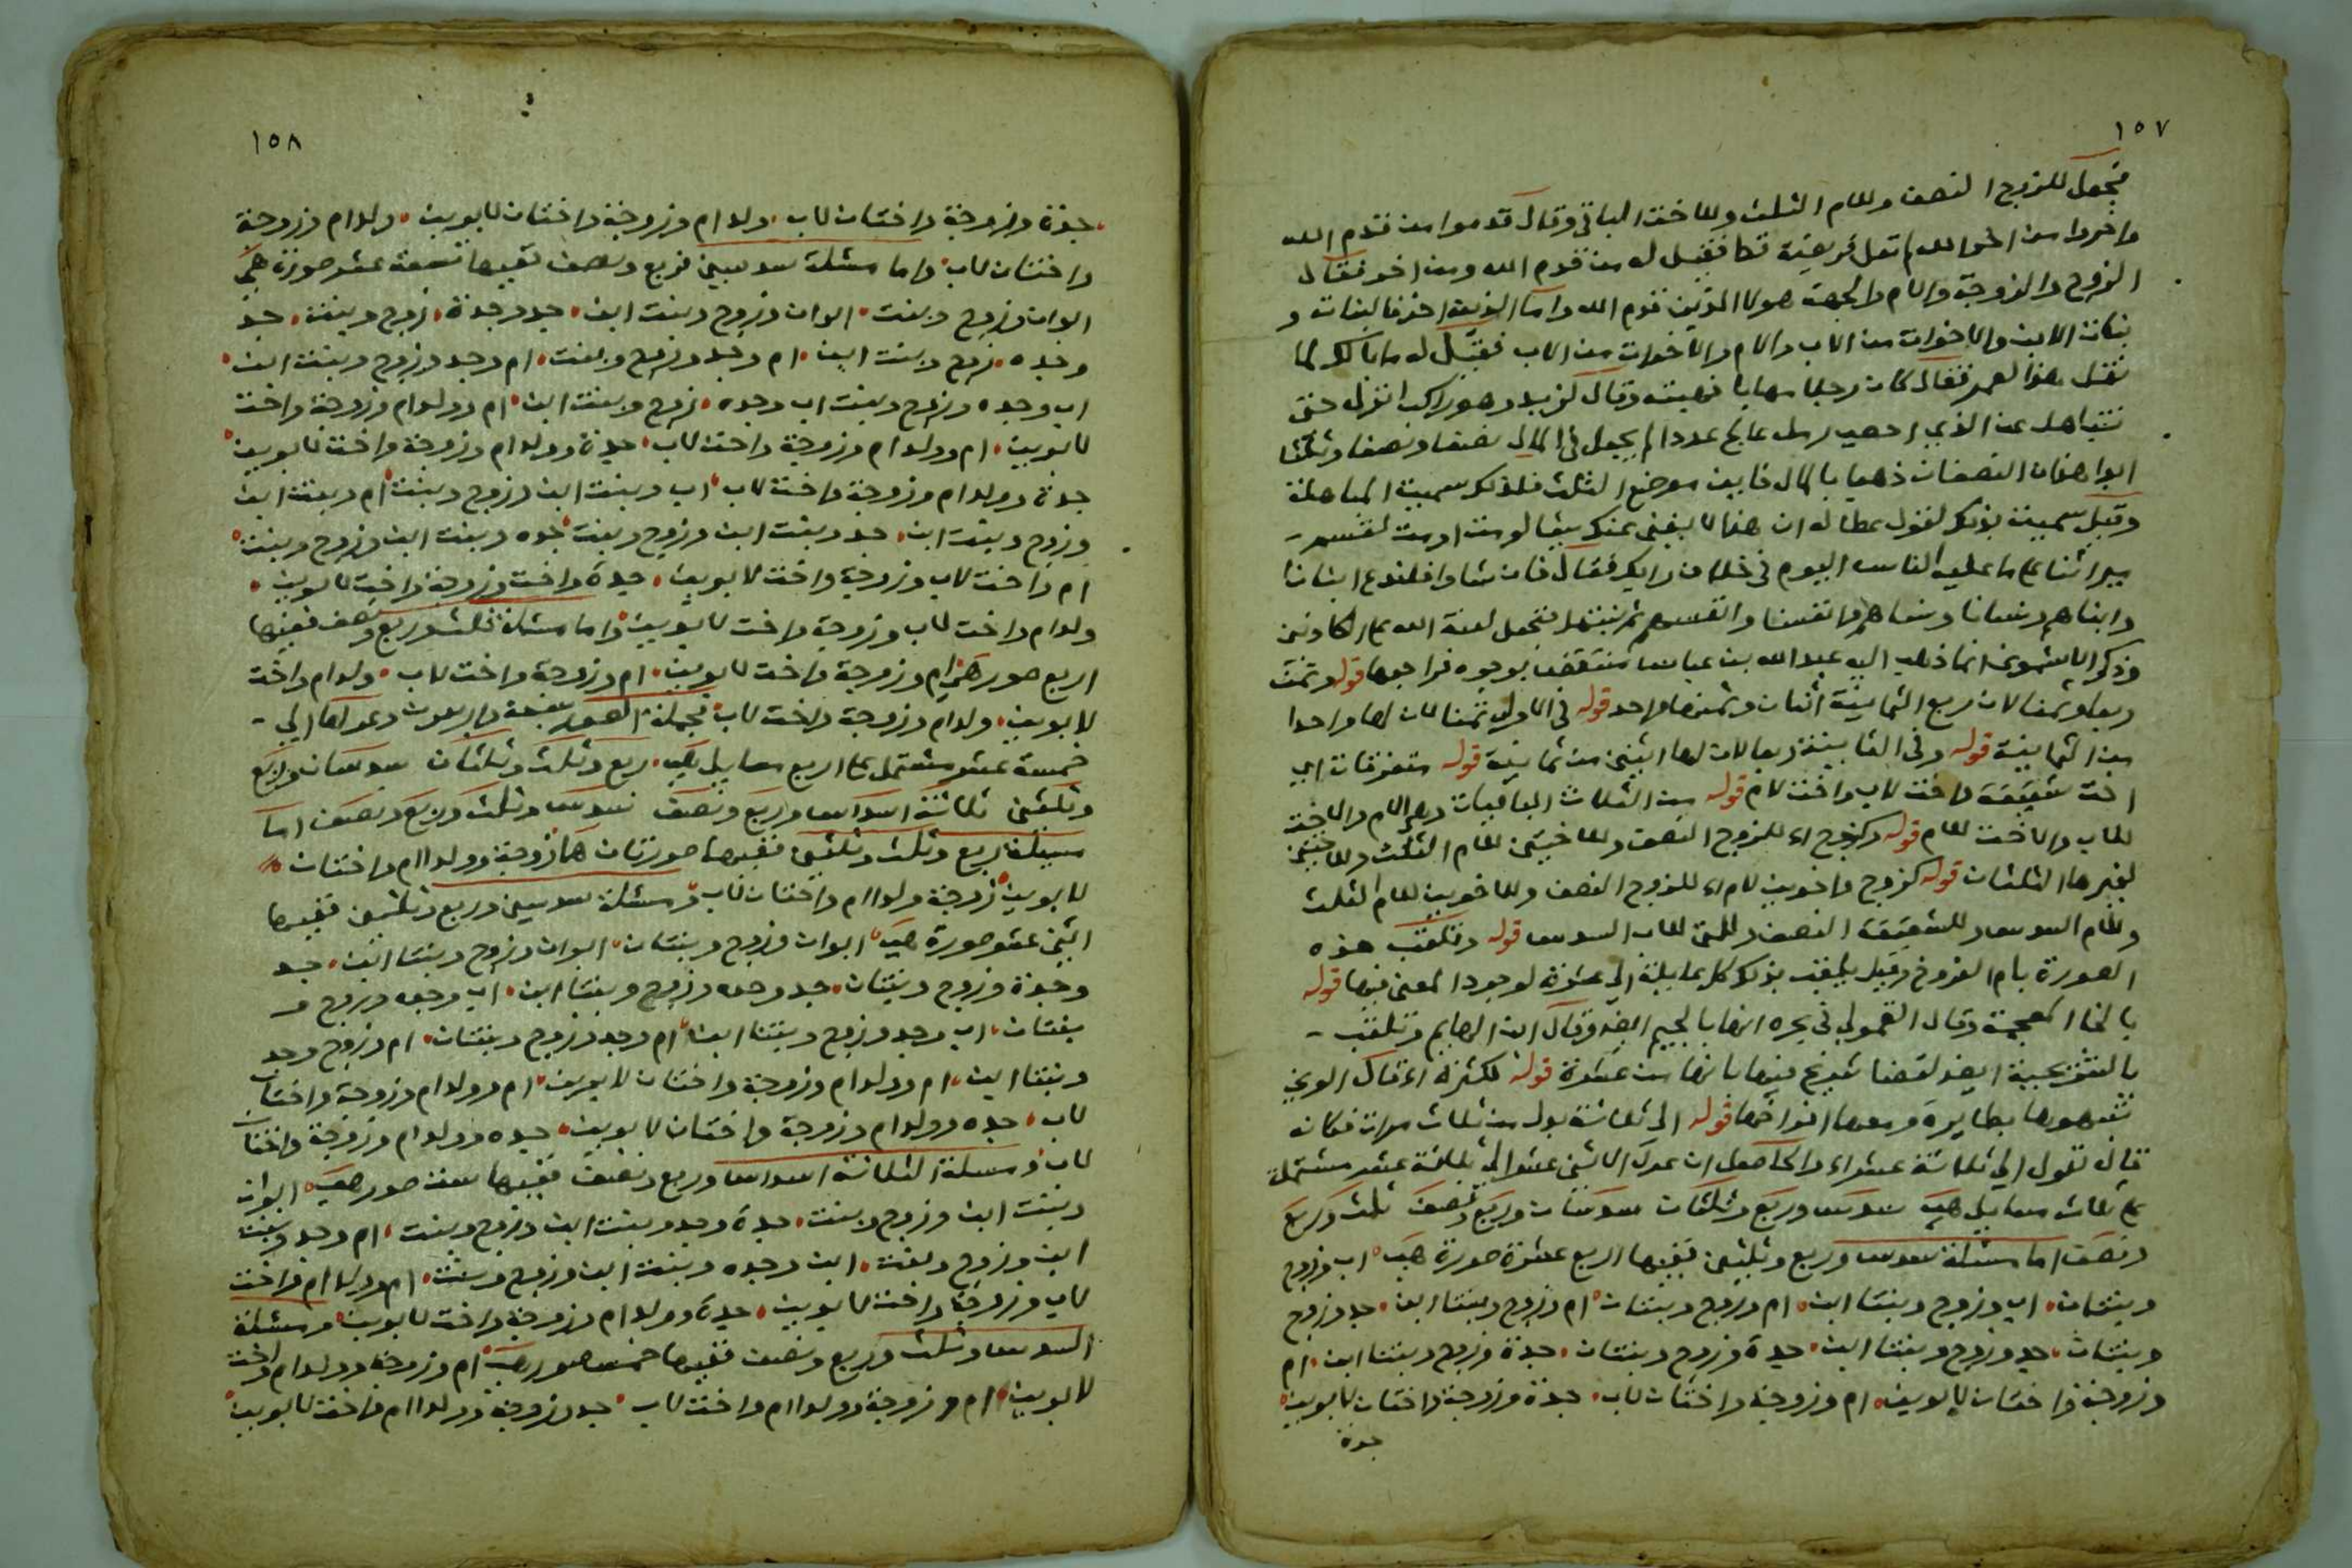 ١٥٧
فجعل للزوج النصف وللام الثلث وللاخت الباقي وقال قدموا من قدم الله
واخروا من اخر الله ما تعل فريضة قط فقيل له من قدم الله ومن اخر فقال
الزوج والزوجة والام والجدة هولا الذين قدم الله واما الذين اخر فالبنات و
بنات الابن والاخوات من الاب والام والاخوات من الاب فقيل له ما بالك لم
تقل هذا لعمر فقال كان رجلا مهابا فهبته وقال لزيد وهو راكب انزل حتى
نتباهل عن الذي احصى رمل عالج عددا لم يجعل في المال نصفا ونصفا وثلثا
ابدا هذان النصفان ذهبا بالمال فاين موضع الثلث فلذلك سميت المباهلة
وقيل سميت بذلك لقول عطا له ان هذا لا يغني عنك شيا لو مت او مت لقسم
ميراثنا على ما عليه الناس اليوم في خلاف رايك فقال فان شاوا فلندع ابنانا
وابناهم ونسانا ونساهم وانفسنا وانفسهم ثم نبتهل فنجعل لعنة الله على الكاذبين
وذكر الاشموني انما ذهب اليه عبد الله بن عباس منتقض بوجوه فراجعها قوله وتمت
ربعا وثمنا لان ربع الثمانية اثنان وثمنها واحد قوله في الاولى ثمنا لان لها واحدا
من الثمانية قوله وفي الثانية ربعا لان لها اثنين من ثمانية قوله متفرقات اي
اخت شقيقة واخت لاب واخت لام قوله من الثلاث الباقيات وهو الام والاخت
للاب والاخت للام قوله وكزوج اء للزوج النصف وللاختين للام الثلث وللاختين
لغيرها الثلثان قوله كزوج واخوين لام اء للزوج النصف وللاخوين للام الثلث
وللام السدس وللشقيقة النصف وللتي للاب السدس قوله وتلقب هذه
الصورة بام الفروخ وقيل يلقب بذلك كل عايلة الى عشرة لوجود المعنى فيها قوله
بالخا المعجمة وقال القمولي في بحره انها بالجيم ايضا وقال ابن الهايم وتلقب
بالشريحية ايضا لقضا شريح فيها بانها من عشرة قوله لكثرة اء قال الوني
شبهوها بطايرة ومعها افراخها قوله الى ثلاثة بدل من ثلاث مرات فكانه
قال تعول الى ثلاثة عشر اء والحاصل ان عول الاثني عشر الى ثلاثة عشر مشتملة
على ثلاث مسايل هي سدس وربع وثلثان سدسان وربع ونصف ثلث وربع
ونصف اما مسئلة سدس وربع وثلثين ففيها اربع عشرة صورة هي اب وزوج
وبنتان اب وزوج وبنتا ابن ام وزوج وبنتان ام وزوج وبنتا ابن جد وزوج
وبنتان جد وزوج وبنتا ابن جدة وزوج وبنتان جدة وزوج وبنتا ابن ام
وزوجة واختان لابوين ام وزوجة واختان لاب جدة وزوجة واختان لابوين
جدة
١٥٨
جدة وزوجة واختان لاب ولد ام وزوجة واختان لابوين ولد ام وزوجة
واختان لاب واما مسئلة سدسين وربع ونصف ففيها تسعة عشر صورة هي
ابوان وزوج وبنت ابوان وزوج وبنت ابن جد وجدة وزوج وبنت جد
وجدة وزوج وبنت ابن ام وجد وزوج وبنت ام وجد وزوج وبنت ابن
اب وجده وزوج وبنت اب وجده وزوج وبنت ابن ام وولد ام وزوجة واخت
لابوين ام وولد ام وزوجة واخت لاب جدة وولد ام وزوجة واخت لابوين
جدة وولد ام وزوجة واخت لاب اب وبنت ابن وزوج وبنت ام وبنت ابن
وزوج وبنت ابن جد وبنت ابن وزوج وبنت جده وبنت ابن وزوج وبنت
ام واخت لاب وزوجة واخت لابوين جدة واخت وزوجة واخت لابوين
ولد ام واخت لاب وزوجة واخت لابوين واما مسئلة ثلث وربع ونصف ففيها
اربع صور هي ام وزوجة واخت لابوين ام وزوجة واخت لاب ولد ام واخت
لابوين ولد ام وزوجة واخت لاب فجملة الصور سبعة واربعون وعولها الى
خمسة عشر مشتمل على اربع مسايل هي ربع وثلث وثلثان سدسان وربع
وثلثين ثلاثة اسداس وربع ونصف سدس وثلث وربع ونصف اما
مسئلة ربع وثلث وثلثين ففيها صورتان هما زوجة وولدا ام واختان
لابوين زوجة وولدا ام واختان لاب ومسئلة سدسين وربع وثلثين ففيها
اثني عشر صورة هي ابوان وزوج وبنتان ابوان وزوج وبنتا ابن جد
وجدة وزوج وبنتان جد وجده وزوج وبنتا ابن اب وجده وزوج و
بنتان اب وجد وزوج وبنتا ابن ام وجد وزوج وبنتان ام وزوج وجد
وبنتا ابن ام وولد ام وزوجة واختان لابوين ام وولد ام وزوجة واختان
لاب جده وولد ام وزوجة واختان لابوين جده وولد ام وزوجة واختان
لاب ومسئلة الثلاثة اسداس وربع ونصف ففيها ستة صور هي ابوان
وبنت ابن وزوج وبنت جدة وجد وبنت ابن وزوج وبنت ام وجد وبنت
ابن وزوج وبنت ابن وجده وبنت ابن وزوج وبنت ام وولد ام واخت
لاب وزوجة واخت لابوين جدة وولد ام وزوجة واخت لابوين ومسئلة
السدس وثلث وربع ونصف ففيها خمس صور هي ام وزوجة وولد ام واخت
لابوين ام وزوجة وولدا ام واخت لاب جد وزوجة وولدا ام واخت لابوين